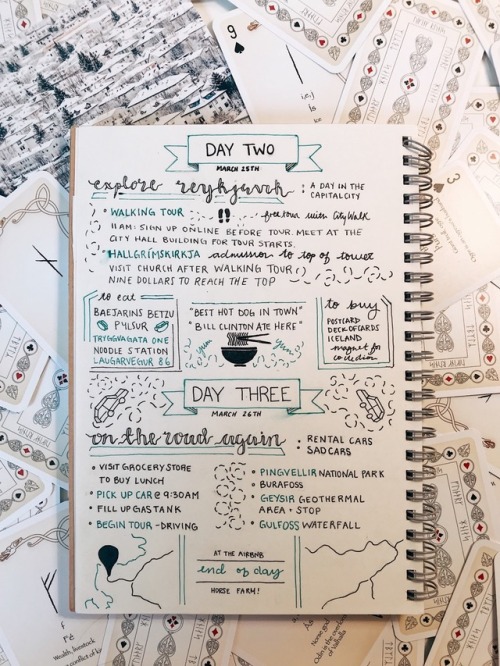 DAY TWO
MARCH 25TH
explore reykjavik : A DAY IN THE
CAPITAL CITY
WALKING TOUR free tour with CityWalk
11AM: SIGN UP ONLINE BEFORE TOUR. MEET AT THE
CITY HALL BUILDING FOR TOUR STARTS.
HALLGRÍMSKIRKJA admission to top of tower
VISIT CHURCH AFTER WALKING TOUR
NINE DOLLARS TO REACH THE TOP
to eat
BAEJARINS BETZU
PYLSUR
TRYGGVAGATA ONE
NOODLE STATION
LAUGARVEGUR 86
"BEST HOT DOG IN TOWN"
"BILL CLINTON ATE HERE"
yum yum
to buy
POSTCARD
DECK OF CARDS
ICELAND
magnet for
collection
DAY THREE
MARCH 26TH
on the road again : RENTAL CARS
SADCARS
• VISIT GROCERY STORE
TO BUY LUNCH
• PICK UP CAR @ 9:30AM
• FILL UP GAS TANK
• BEGIN TOUR - DRIVING
• PINGVELLIR NATIONAL PARK
• BURAFOSS
• GEYSIR GEOTHERMAL
AREA + STOP
• GULFOSS WATERFALL
AT THE AIRBNB
end of day
HORSE FARM!
9
3
fé
Wealth, livestock